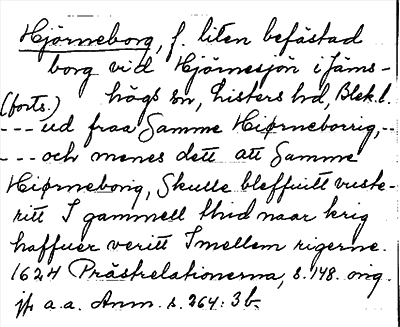 Hjörneborg, f. liten befästad
borg vid Hjörnesjön i Jäms-
(forts.) högs sn, Listers hd, Blek.l.
--- ud fraa Samme Hiørneborrig, --
--- och menes dett att Samme
Hiørneborig, Skulle bleffuitt
ritt I gammell thid naar krig
haffuer veritt Imellem rigerne.
1624 Prästrelationerna, s. 148. orig.
jfr a.a. Anm. s. 264: 3 b.